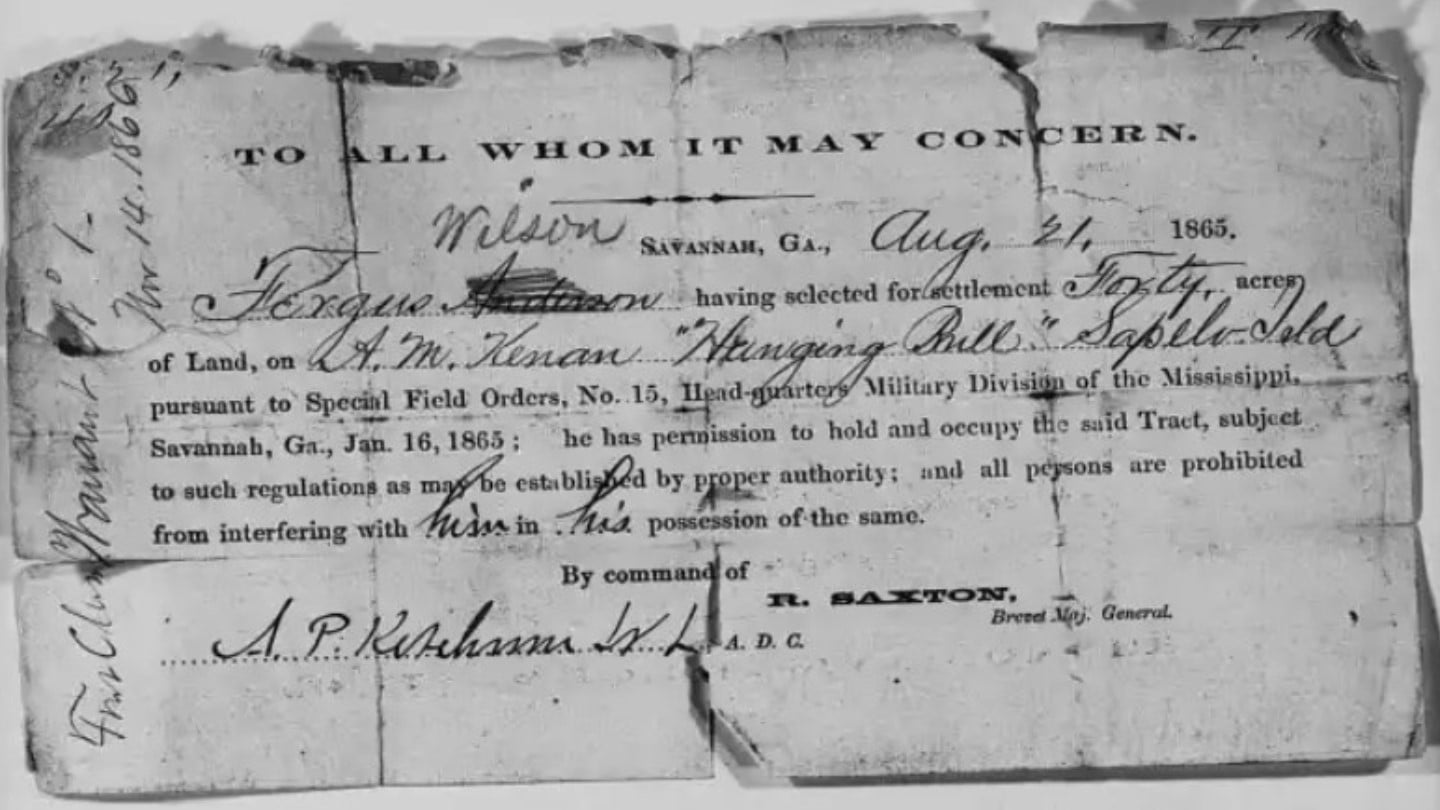 TO ALL WHOM IT MAY CONCERN.
Wilson
SAVANNAH, GA., Aug. 21, 1865.
Fergus Anderson having selected for settlement Forty, acres
of Land, on A. M. Kenan "Hanging Bull" Sapelo Isld
pursuant to Special Field Orders, No. 15, Head-quarters Military Division of the Mississippi,
Savannah, Ga., Jan. 16, 1865; he has permission to hold and occupy the said Tract, subject
to such regulations as may be established by proper authority; and all persons are prohibited
from interfering with him in his possession of the same.
By command of
R. SAXTON,
Brevet Maj. General.
A. P. Ketchum
A. D. C.
Warrant No 1.
Nov 14. 1866